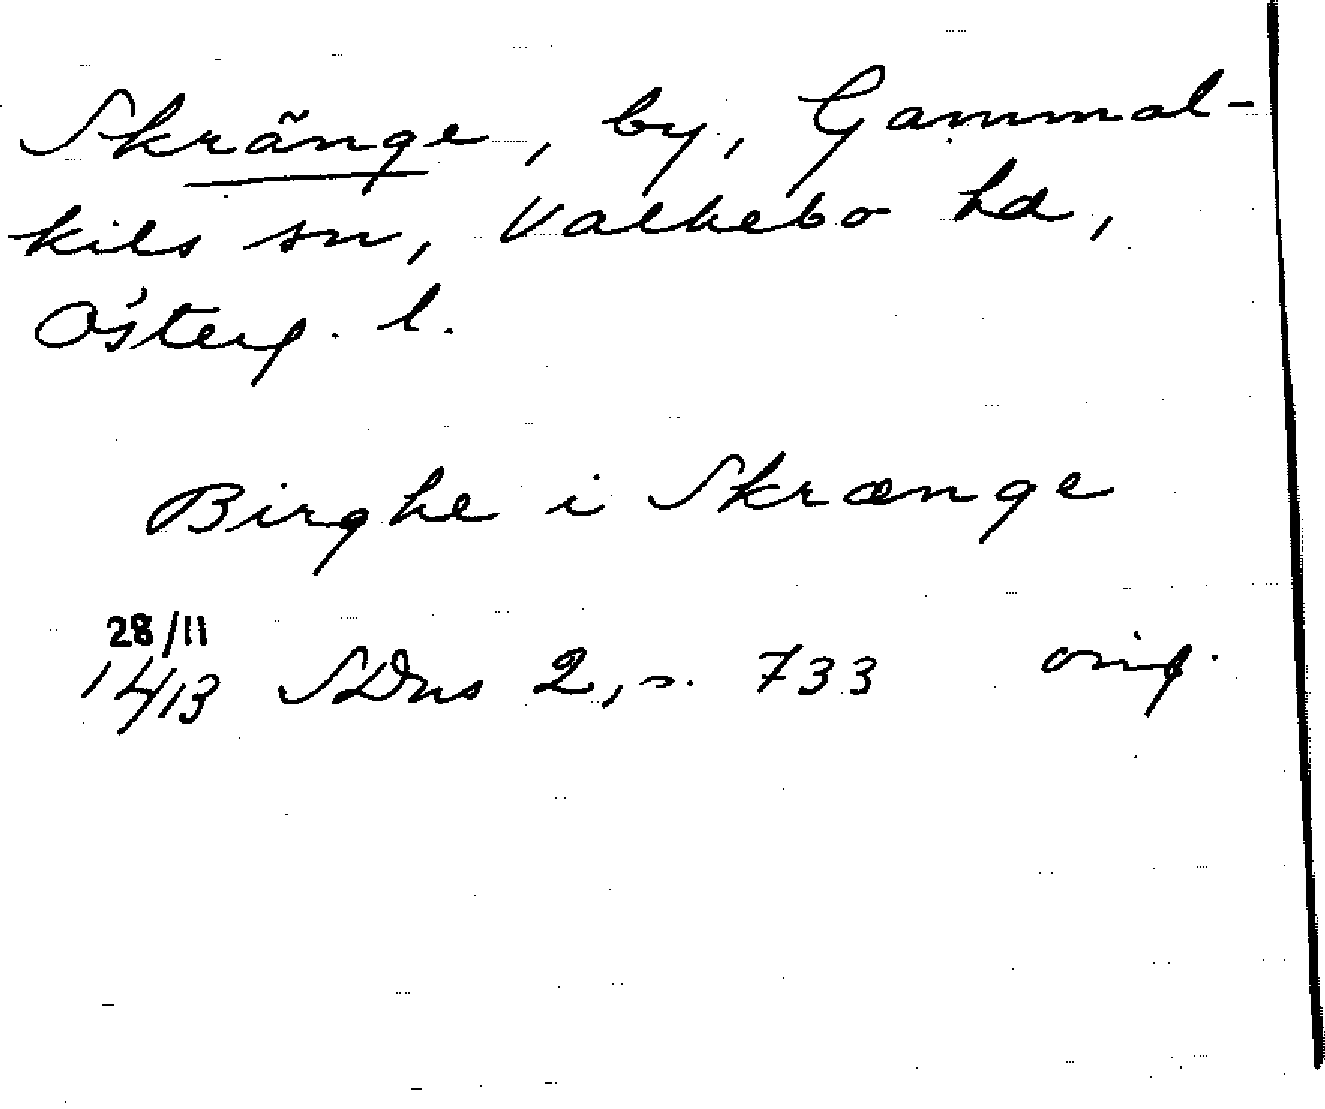 Skränge, by, Gammal-
kils sn, Valkebo hd,
Österg. l.
Birghe i Skrænge
28/11
1413 SDns 2, s. 733 orig.